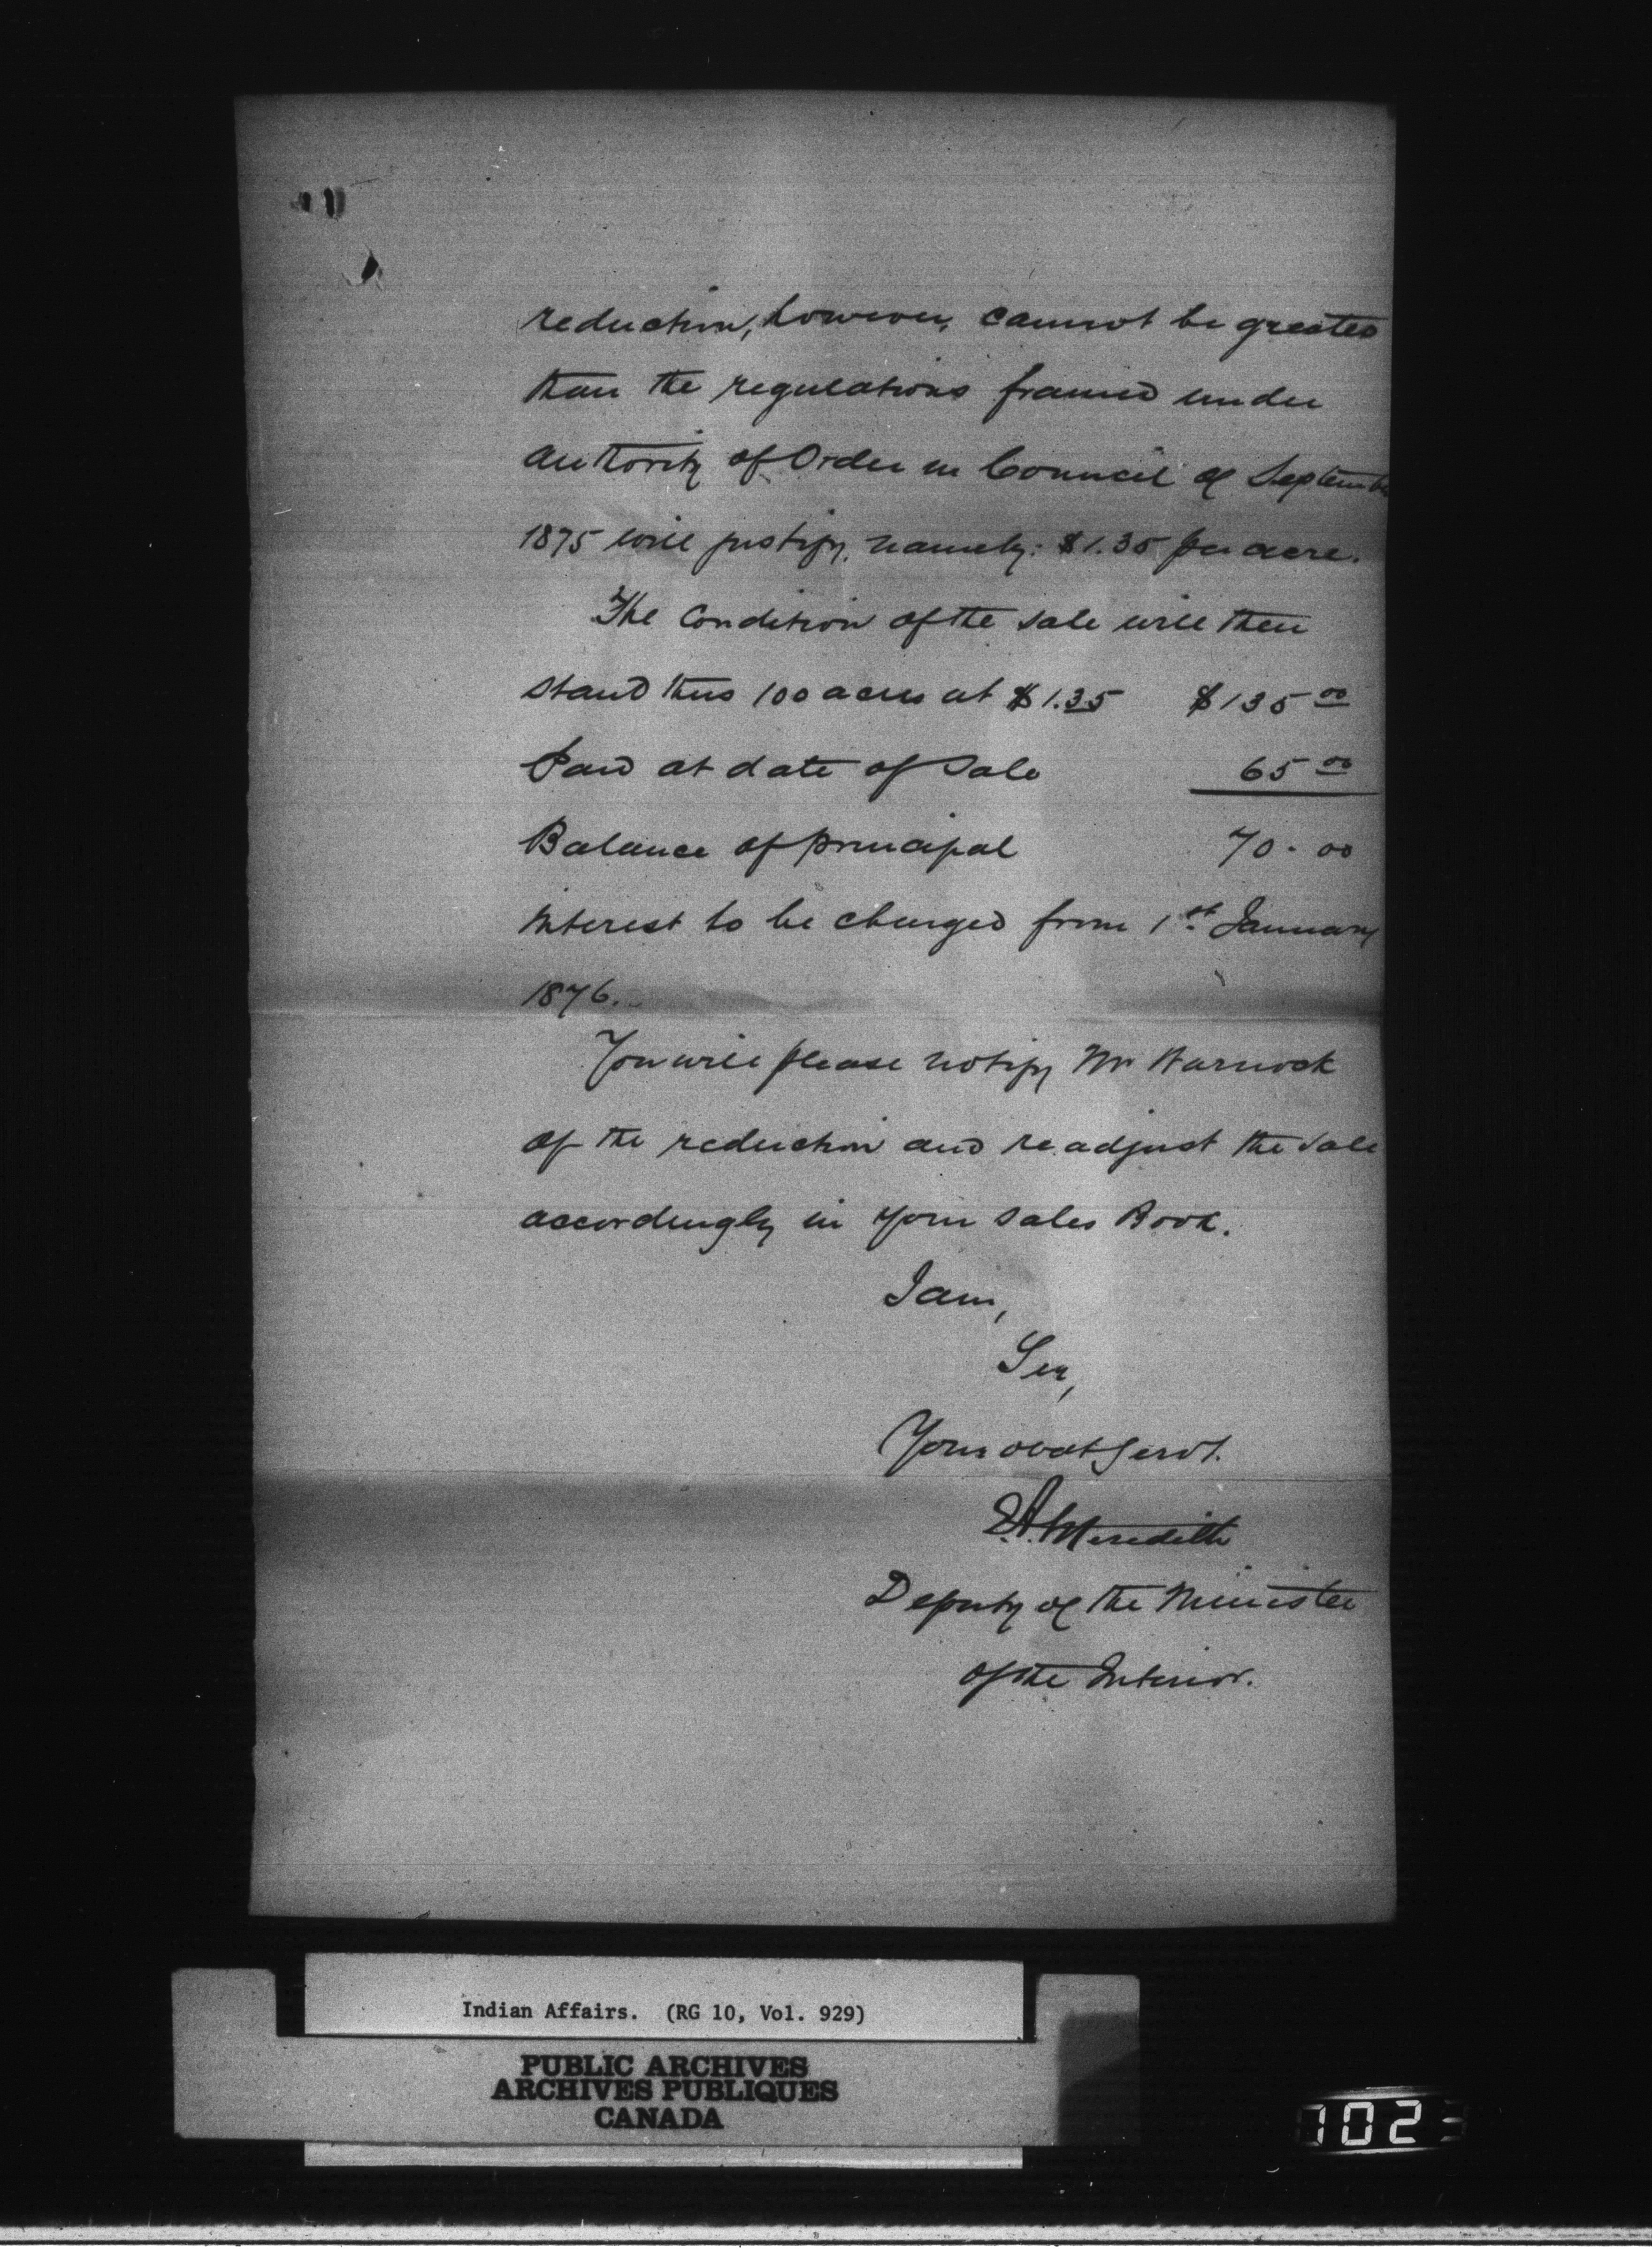 reduction, however, cannot be greater
than the regulations framed under
authority of Order in Council of Septembe
1875 will justify, namely: $1.35 per acre.
The Condition of the sale will then
stand thus 100 acres at $1.35 $135 00
Paid at date of Sale 65 00
Balance of principal 70.00
interest to be charged from 1st January
1876.
You will please notify Mr Warnock
of the reduction and readjust the sale
accordingly in your Sales Book.
I am,
Sir,
Your obdt Servt.
E.A. Meredith
Deputy of the Minister
of the Interior.
Indian Affairs. (RG 10, Vol. 929)
PUBLIC ARCHIVES
ARCHIVES PUBLIQUES
CANADA
1023